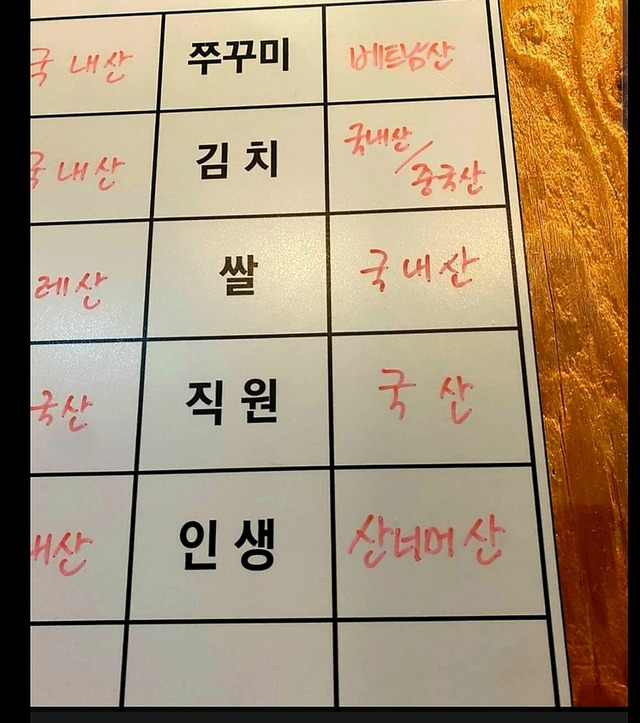 국내산 쭈꾸미 베트남산
국내산 김치 국내산/
중국산
산 쌀 국내산
국산 직원 국산
내산 인생 산너머산